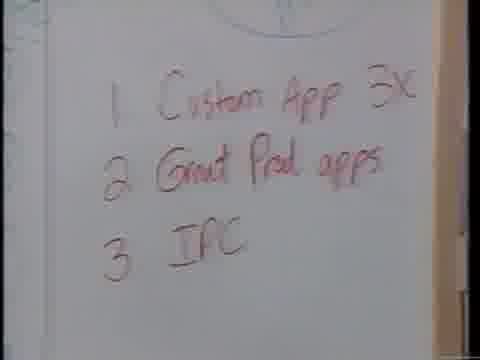 1 Custom App 3x
2 Great Prod apps
3 IPC